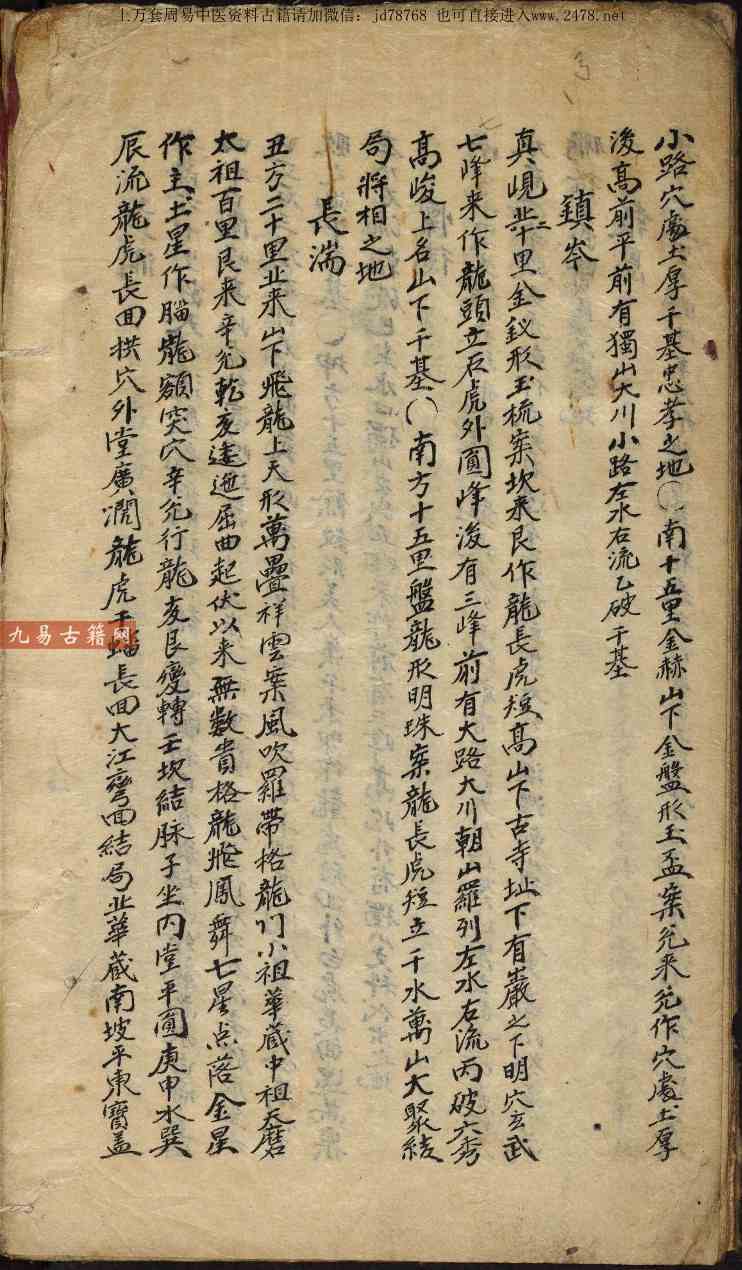 上万套周易中医资料古籍请加微信：jd78768 也可直接进入www.2478.net
3
小路穴處土厚千基忠孝之地〇南十五里金赫山下金盤形玉盃案兊来兊作穴處土厚
後高前平前有獨山大川小路左水右流乙破千基
鎮岑
真峴北二十里金釵形玉梳案坎来艮作龍長虎短高山下古寺址下有巖之下明穴玄武
七峰来作龍頭立石虎外圓峰後有三峰前有大路大川朝山羅列左水右流丙破六秀
高峻上名山下千基〇南方十五里盤龍形明珠案龍長虎短立千水萬山大聚結
局將相之地
長湍
丑方二十里北来山下飛龍上天形萬疊祥雲案風吹羅帶格龍门小祖華蔵中祖天磨
太祖百里艮来辛兊乾亥逶迤屈曲起伏以来無數貴格龍飛鳳舞七星点落金星
作主土星作腦龍額突穴辛兊行龍亥艮變轉壬坎結脉子坐内堂平圓庚申水巽
辰流龍虎長回拱穴外堂廣濶龍虎千蟠長回大江彎回結局北華蔵南坡平東寶盖
九易古籍网